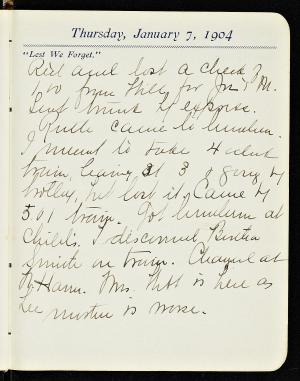 Thursday, January 7, 1904
"Lest We Forget."
Rec'd and lost a check
from Phil for Jos. M.
Sent trunk by express.
Ruth came to luncheon.
I meant to take 4 o'clock
train, leaving at 3 & going by
trolley, but lost it. Came by
5.01 train. Got luncheon at
Child's. I discovered
Smith on train. Changed at
N. Haven. Mrs. is here as
her is worse.